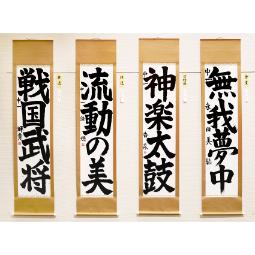 無我夢中
神楽太鼓
流動の美
戦国武将